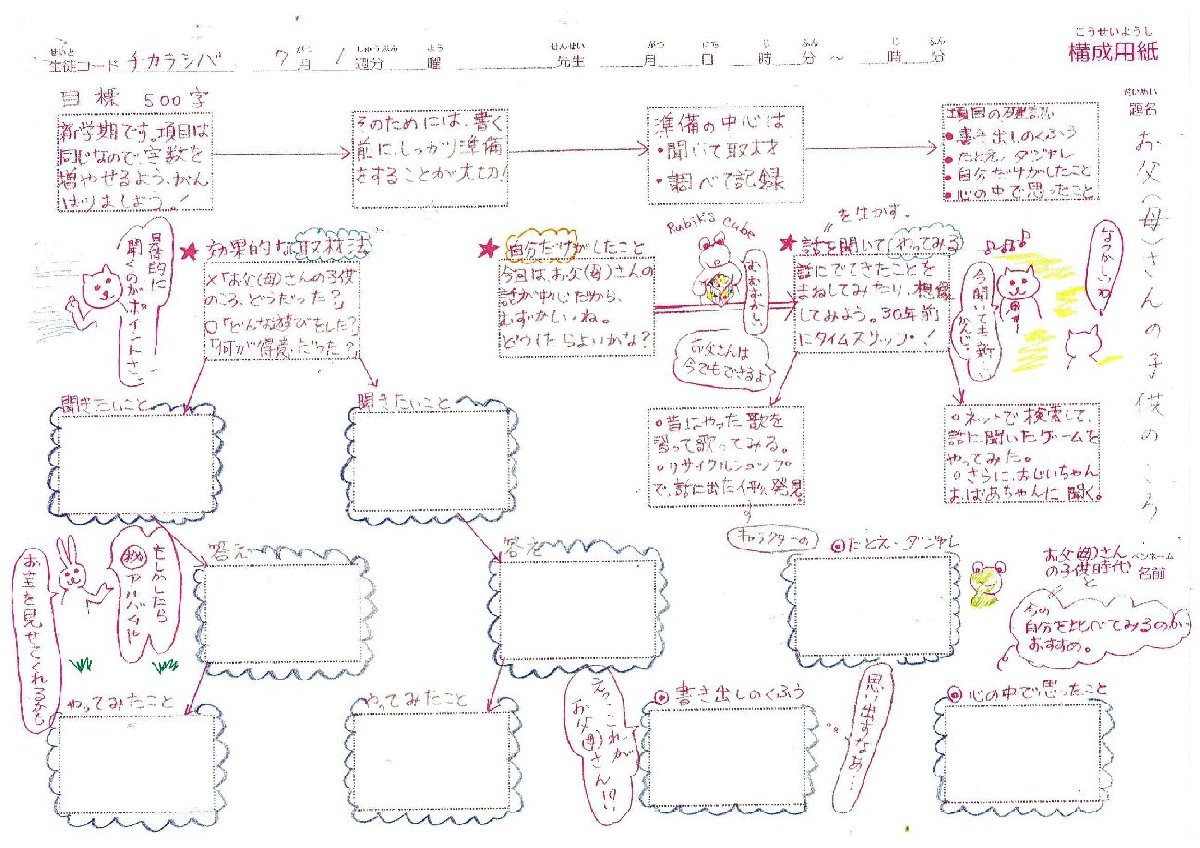 こうせいようし
構成用紙
せいと がつ しゅうぶん よう せんせい がつ にち じ ふん じ ふん
生徒コード チカラシバ 7月 1 週分 曜 先生 月 日 時 分 ~ 時 分
だいめい
題名
お父(母)さんの子供のころ
目標 500字
新学期です。項目は
同じなので、字数を
増やせるよう、がん
ばりましょう。!
そのためには、書く
前に、しっかり準備
をすることが大切!
準備の中心は
・聞いて取材
・調べて記録
項目の確認
●書き出しのくふう
●たとえ・ダジャレ
●自分だけがしたこと
●心の中で思ったこと
具体的に
聞くのがポイントさ。
★効果的な取材法
×「お父(母)さんの子供
のころ、どうだった?」
○「どんな遊びをした?」
「何が得意だった?」
★自分だけがしたこと
今回は、お父(母)さんの
話が中心だから、
むずかしいね。
どうしたらよいかな?
Rubik's Cube
むむずかしい
お父さんは
今でもできるよ
を生かす。
★話を聞いてやってみる
話にでてきたことを
まねしてみたり、想像
してみよう。30年前
にタイムスリップ!
今聞いても新しい
かんじ。
なつかしいわ
聞きたいこと
聞きたいこと
・昔にやった歌を
習って歌ってみる。
・リサイクルショップ
で、話に出た人形、発見。
キャラクターの
・ネットで検索して、
話に聞いたゲームを
やってみた。
・さらに、おじいちゃん
おばあちゃんに聞く。
もしかしたら
アルバムや
お宝を見せてくれるかも
答え
答え
◎たとえ・ダジャレ
お父(母)さん
の子供時代
と
ペンネーム
名前
今の
自分を比べてみるのが
おすすめ。
やってみたこと
やってみたこと
えっ、これが
お父(母)さん!?
◎書き出しのくふう
思い出すなあ…
◎心の中で思ったこと